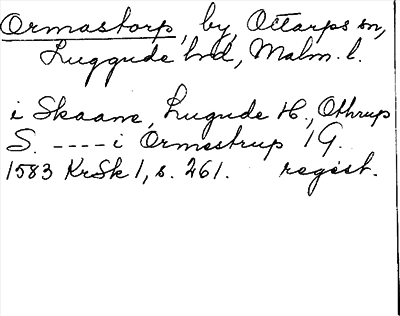 Ormastorp, by, Ottarps sn,
Luggude hd, Malm. l.
i Skaane, Lugude H., Othrup
S. ---- i Ormestrup 1 G.
1583 KrSk 1, s. 261. regest.